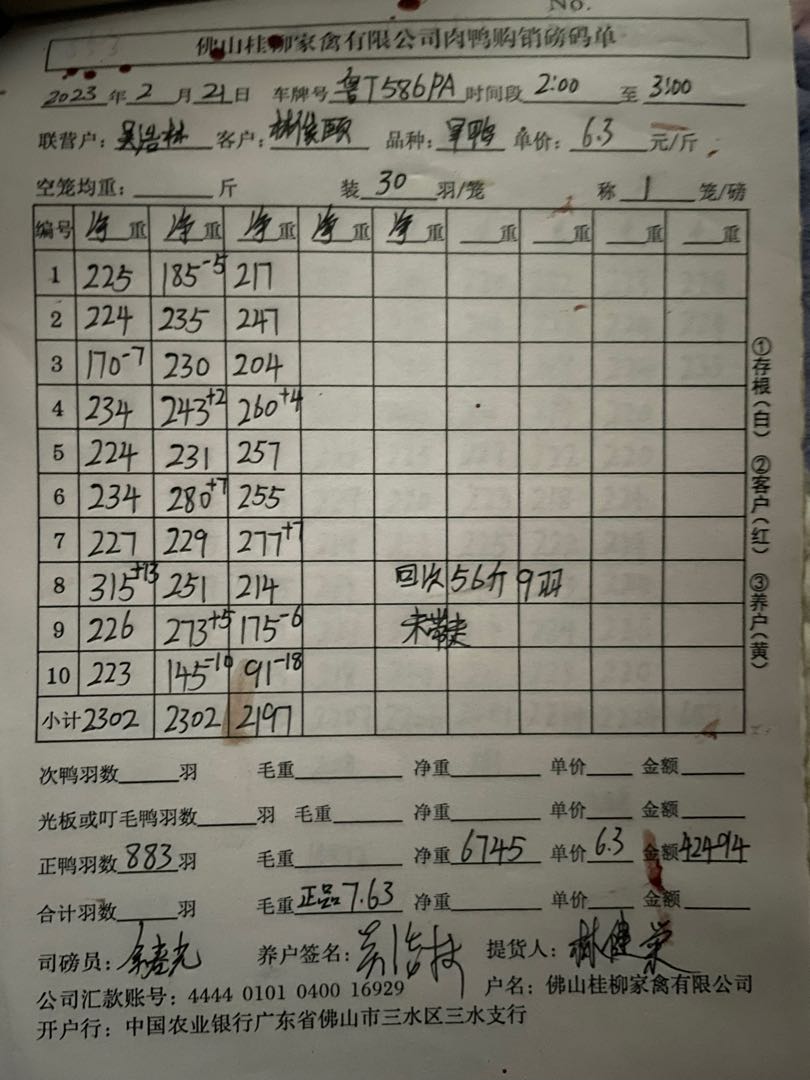 No.
佛山桂柳家禽有限公司肉鸭购销磅码单
2023 年 2 月 21 日 车牌号 粤T586PA 时间段 2:00 至 3:00
联营户: 吴浩林 客户: 林俊颐 品种: 单鸭 单价: 6.3 元/斤
空笼均重: 斤 装 30 羽/笼 称 1 笼/磅
编号 净重 净重 净重 净重 净重 重 重 重 重
1 225 185-5 217
2 224 235 247
3 170-7 230 204
4 234 243+2 260+4
5 224 231 257
6 234 280+7 255
7 227 229 277+7
8 315+13 251 214 回次 56斤 9羽
9 226 273+5 175-6 未带走
10 223 145-10 91-18
小计 2302 2302 2197
次鸭羽数 羽 毛重 净重 单价 金额
光板或叮毛鸭羽数 羽 毛重 净重 单价 金额
正鸭羽数 883 羽 毛重 净重 6745 单价 6.3 金额 42494
合计羽数 羽 毛重 正品7.63 净重 单价 金额
司磅员: 养户签名: 吴浩林 提货人: 林健荣
公司汇款账号: 4444 0101 0400 16929 户名: 佛山桂柳家禽有限公司
开户行: 中国农业银行广东省佛山市三水区三水支行
①存根(白) ②客户(红) ③养户(黄)